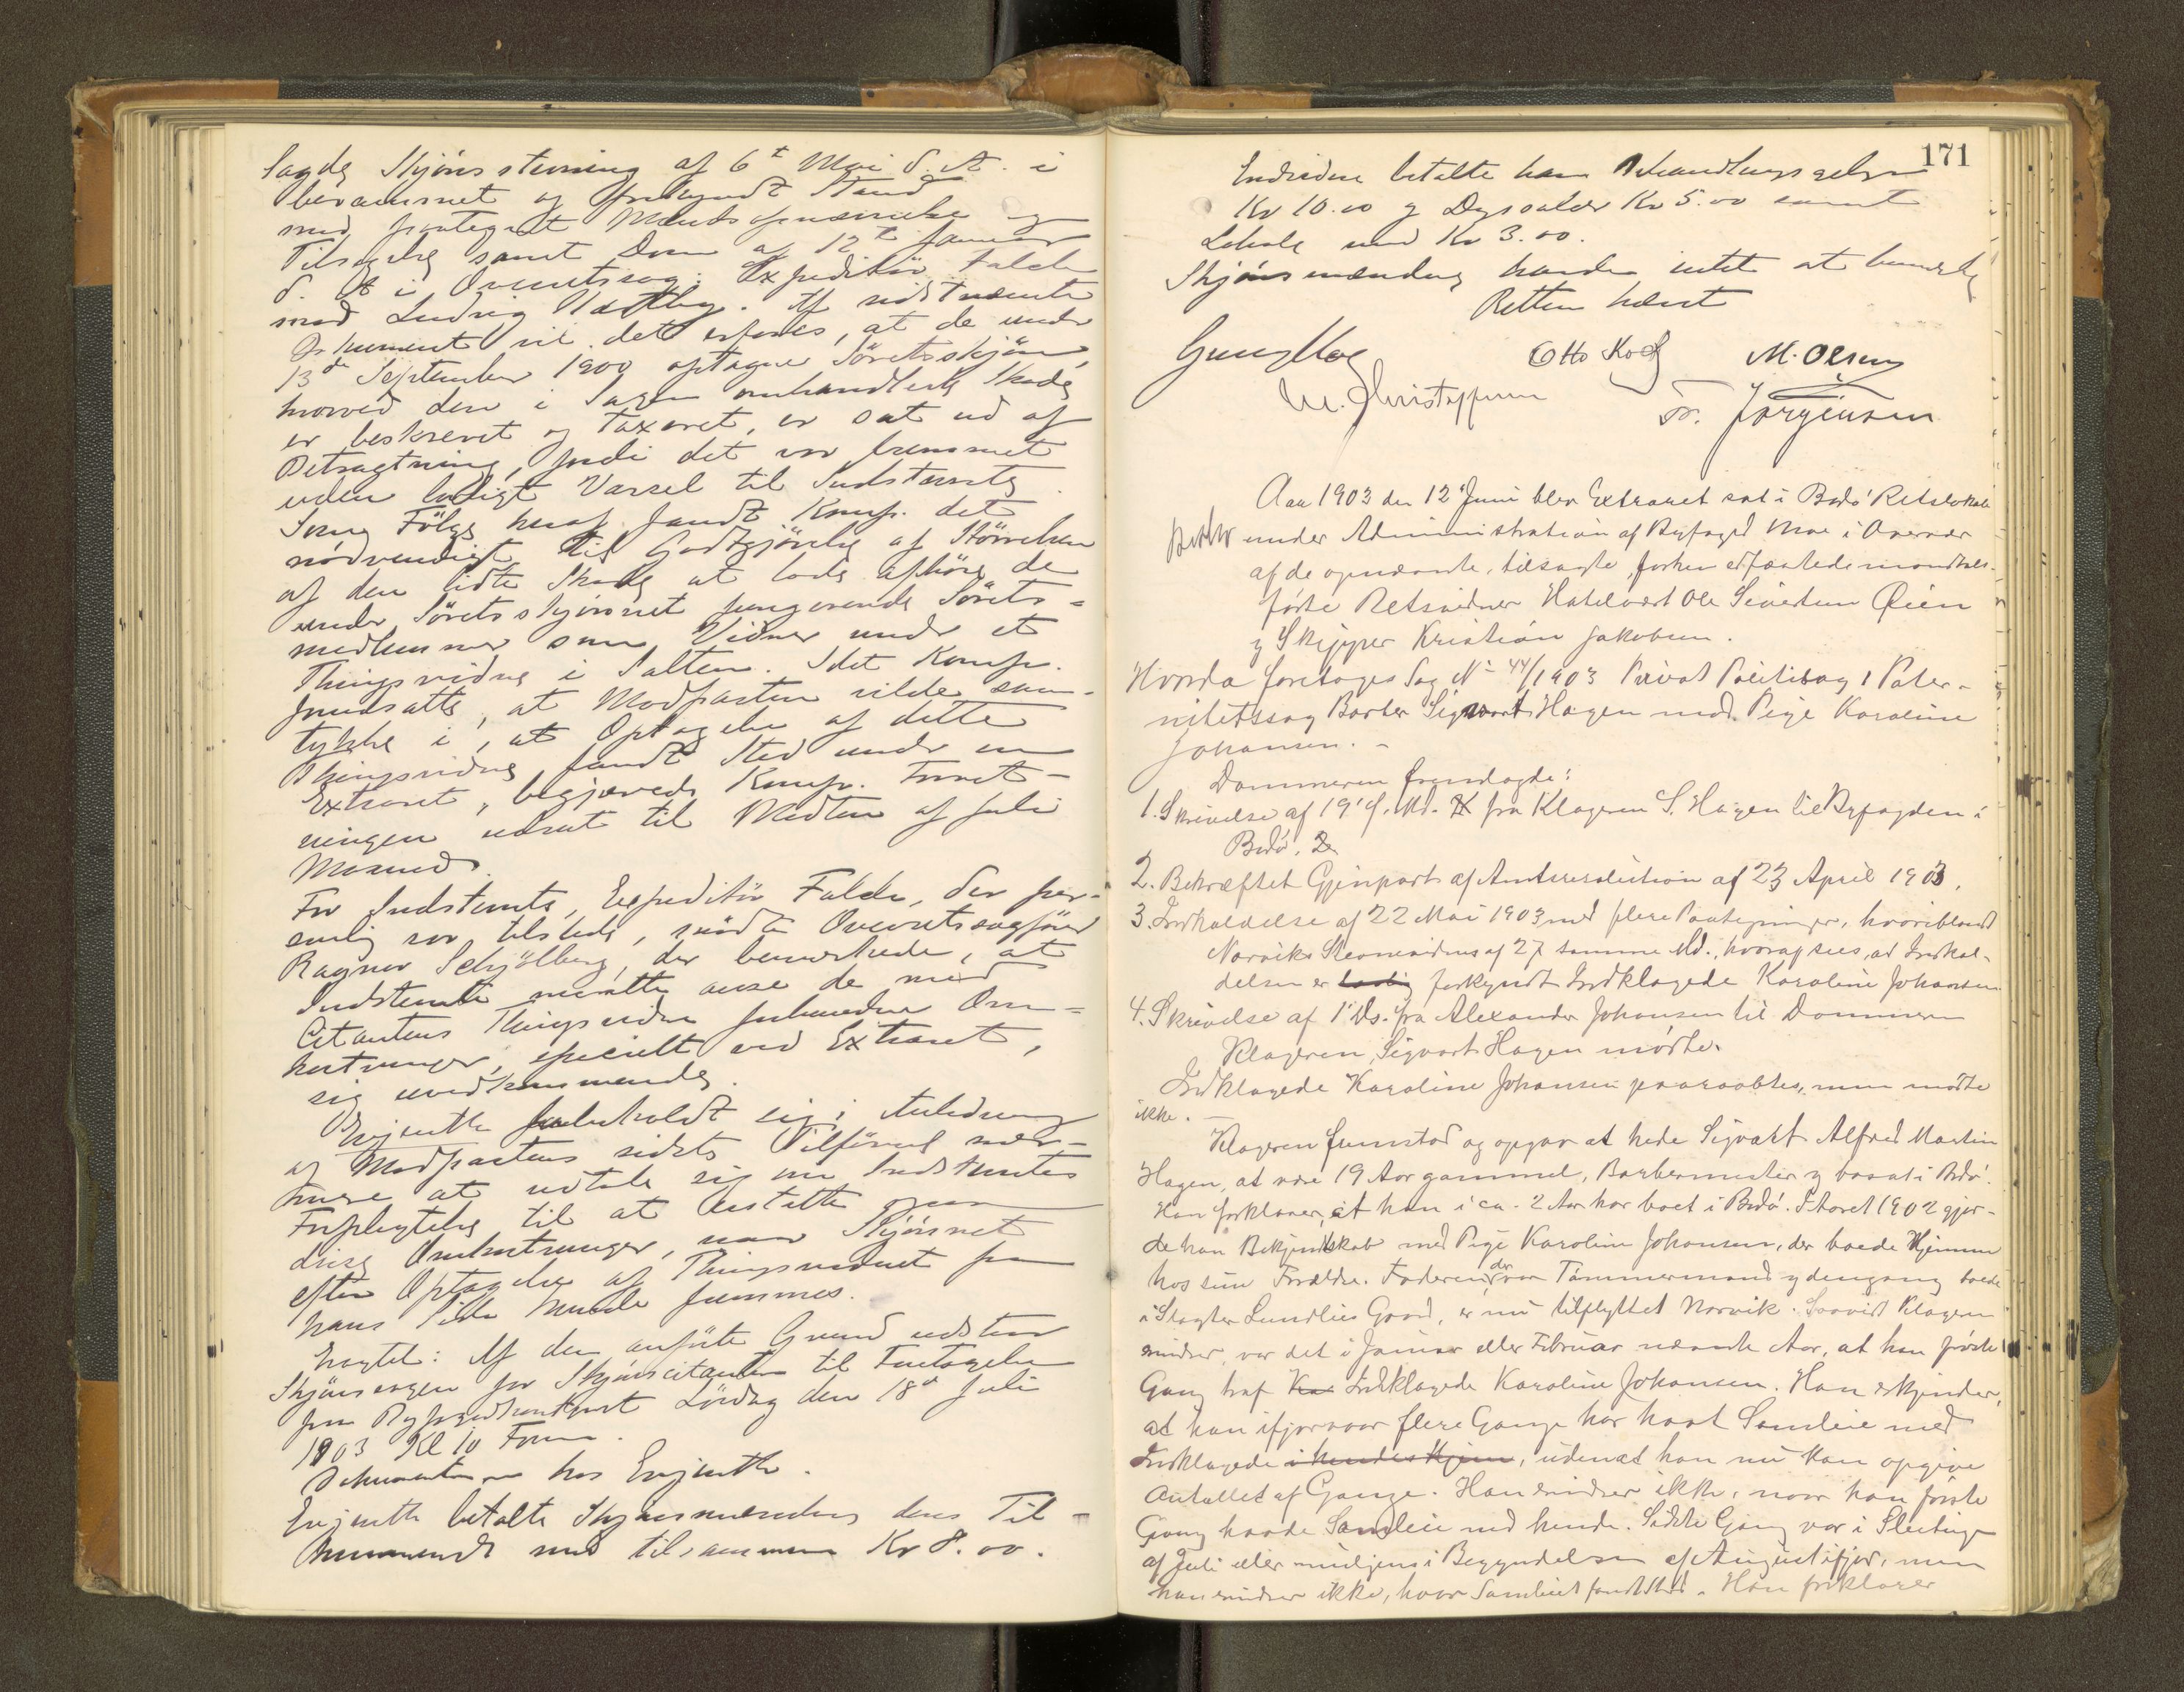 lagde Skjönsstevning af 6t Mai d. A. i
berammet og forkyndt Stand
med paategnet Mændsopnævnelse og
Tilsigelse samt Dom af 12t Januar
d. A i Overretssag: Expeditör Falch
mod Ludvig. Af sidstnævnte
Dokument vil det erfares, at de under
13de September 1900 optagne Söretsskjön,
hvorved den i Sagen omhandlede Skade
er beskrevet og taxeret, er sat ud af
Betragtning, fordi det var berammet
uden lovligt Varsel til Indstevnte.
Som Fölge heraf fandt Komp. det
nödvendigt til Godtgjörelse af Störrelsen
af den lidte Skade at lade afhöre de
under Söretsskjönnet fungerende Sörets=
medlemmer som Vidner under et
Thingsvidne i Salten. Idet Komp.
forudsatte, at Modparten vilde sam-
tykke i, at Optagelse af dette
Thingsvidne fandt Sted under en
Extraret, begjærede Komp. Forret-
ningen udsat til Midten af Juli
Maaned.
For Indstevnte, Expeditör Falch, der per-
sonlig var tilstede, mödte Overretssagförer
Ragnar Schjölberg, der bemærkede, at
Indstevnte maatte anse de med
Citantens Thingsvidne forbundne Om=
kostninger, specielt ved Extraret,
sig uvedkommende.
Enjuth forbeholdt sig i Anledning
af Modpartens sidste Tilförsel nær-
mere at udtale sig om Indstevntes
Forpligtelse til at erstatte
disse Omkostninger, naar Skjönnet
efter Optagelse af Thingsvidnet fra
hans Side fremmes.
Eragtet: Af den anförte Grund udstaar
Skjönssagen for Skjönscitanten til Foretagelse
paa Byfogedkontoret Lördag den 18de Juli
1903 Kl 10 Form.
Dokumenterne hos Enjuth.
Enjuth betalte Skjönsmændene deres Til-
kommende med tilsammen Kr 8.00.
171
Endvidere betalte han Behandlingsgebyr
Kr 10.00 og Dagsaler Kr 5.00 samt
Lokale med Kr 3.00.
Skjönsmændene havde intet at bemærke
Retten hævet
Otto Koch M. Olsen
M. Christophersen Fr. Jörgensen
Aar 1903 den 12' Juni blev Extraret sat i Bodö Retslokale
under Administration af Byfoged Moe i Overvær
af de opnævnte, tilsagte, forhen edfæstede mandtals-
førte Retsvidner Hotelvært Ole Sivertsen Øien
og Skipper Kristian Jakobsen.
Hvorda foretoges Sag No 44/1903 Privat Politisag i Pater-
nitetssag Barber Sigvart Hagen mod Pige Karoline
Johansen. -
Dommeren fremlagde:
1. Skrivelse af 19' f. Md. fra Klageren S. Hagen til Byfogden i
Bodö.
2. Bekræftet Gjenpart af Amtsresolution af 23 April 1903.
3. Indkaldelse af 22 Mai 1903 med flere Paategninger, hvoriblandt
Narviks Stevnevidners af 27 samme Md., hvoraf sees, at Indkal-
delsen er lovlig forkyndt Indklagede Karoline Johansen
4. Skrivelse af 1' ds. fra Alexander Johansen til Dommeren
Klageren, Sigvart Hagen mødte.
Indklagede Karoline Johansen paaraabtes, men mødte
ikke. -
Klageren fremstod og opgav at hede Sigvart Alfred Martin
Hagen, at være 19 Aar gammel, Barbermester og bosat i Bodö.
Han forklarer, at han i ca. 2 Aar har boet i Bodö. I Aaret 1902 gjor-
de han Bekjendtskab med Pige Karoline Johansen, der boede hjemme
hos sine Forældre. Faderen, der var Tømmermand og dengang boede
i Slagter Lundlies Gaard, er nu tilflyttet Narvik. Saavidt Klageren
mindes, var det i Januar eller Februar nævnte Aar, at han første
Gang traf Kar Indklagede Karoline Johansen. Han erkjender,
at han ifjor vaar flere Gange har havt Samleie med
Indklagede i hendes Hjem, uden at han nu kan opgive
Antallet af Gange. Han mindes ikke, naar han første
Gang havde Samleie med hende. Sidste Gang var i Slutningen
af Juli eller muligens i Begyndelsen af August ifjor, men
han mindes ikke, hvor Samleiet fandt Sted. Han forklarer